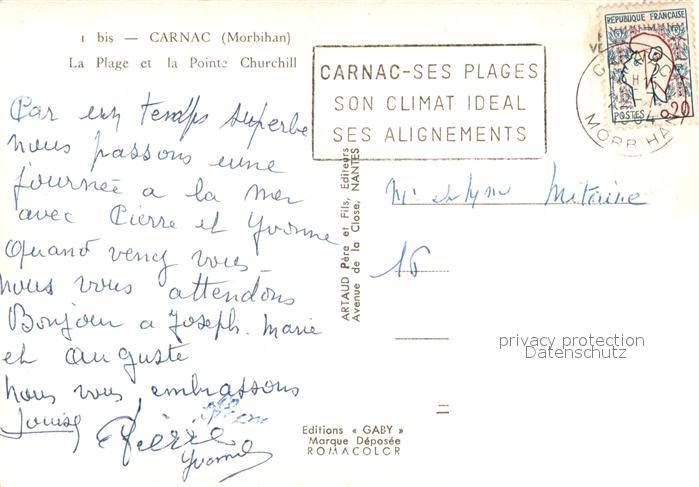 1 bis — CARNAC (Morbihan)
La Plage et la Pointe Churchill
CARNAC-SES PLAGES
SON CLIMAT IDEAL
SES ALIGNEMENTS
REPUBLIQUE FRANÇAISE
POSTES 0,20
MORBIHAN
Par un temps superbe
nous passons une
journée a la mer
avec Pierre et Yvonne
Quand venez vous
nous vous attendons
Bonjour a Joseph. Marie
et auguste
nous vous embrassons
Louise
Pierre
Yvonne
ARTAUD Père et Fils, Editeurs
Avenue de la Close, NANTES
Mr et Mme Métairie
16
Editions « GABY »
Marque Déposée
ROMACOLOR
privacy protection
Datenschutz